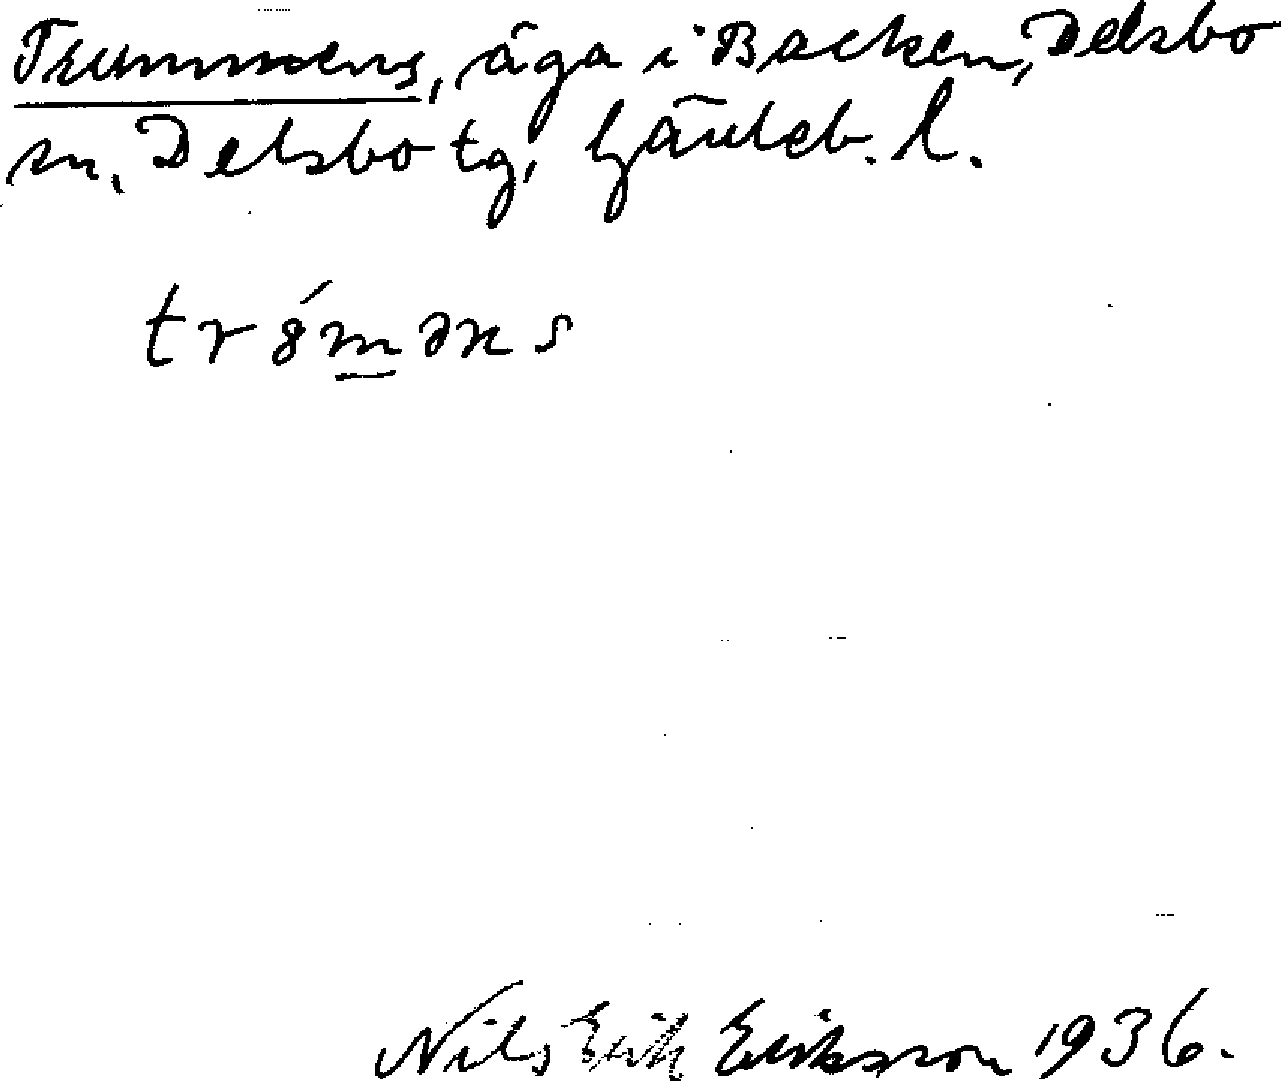 Trummens, äga i Backen, Delsbo
sn, Delsbo tg, Gävleb. l.
tróməns
Nils Erik Eriksson 1936.